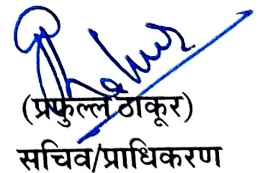 (प्रफुल्ल ठाकूर)
सचिव/प्राधिकरण